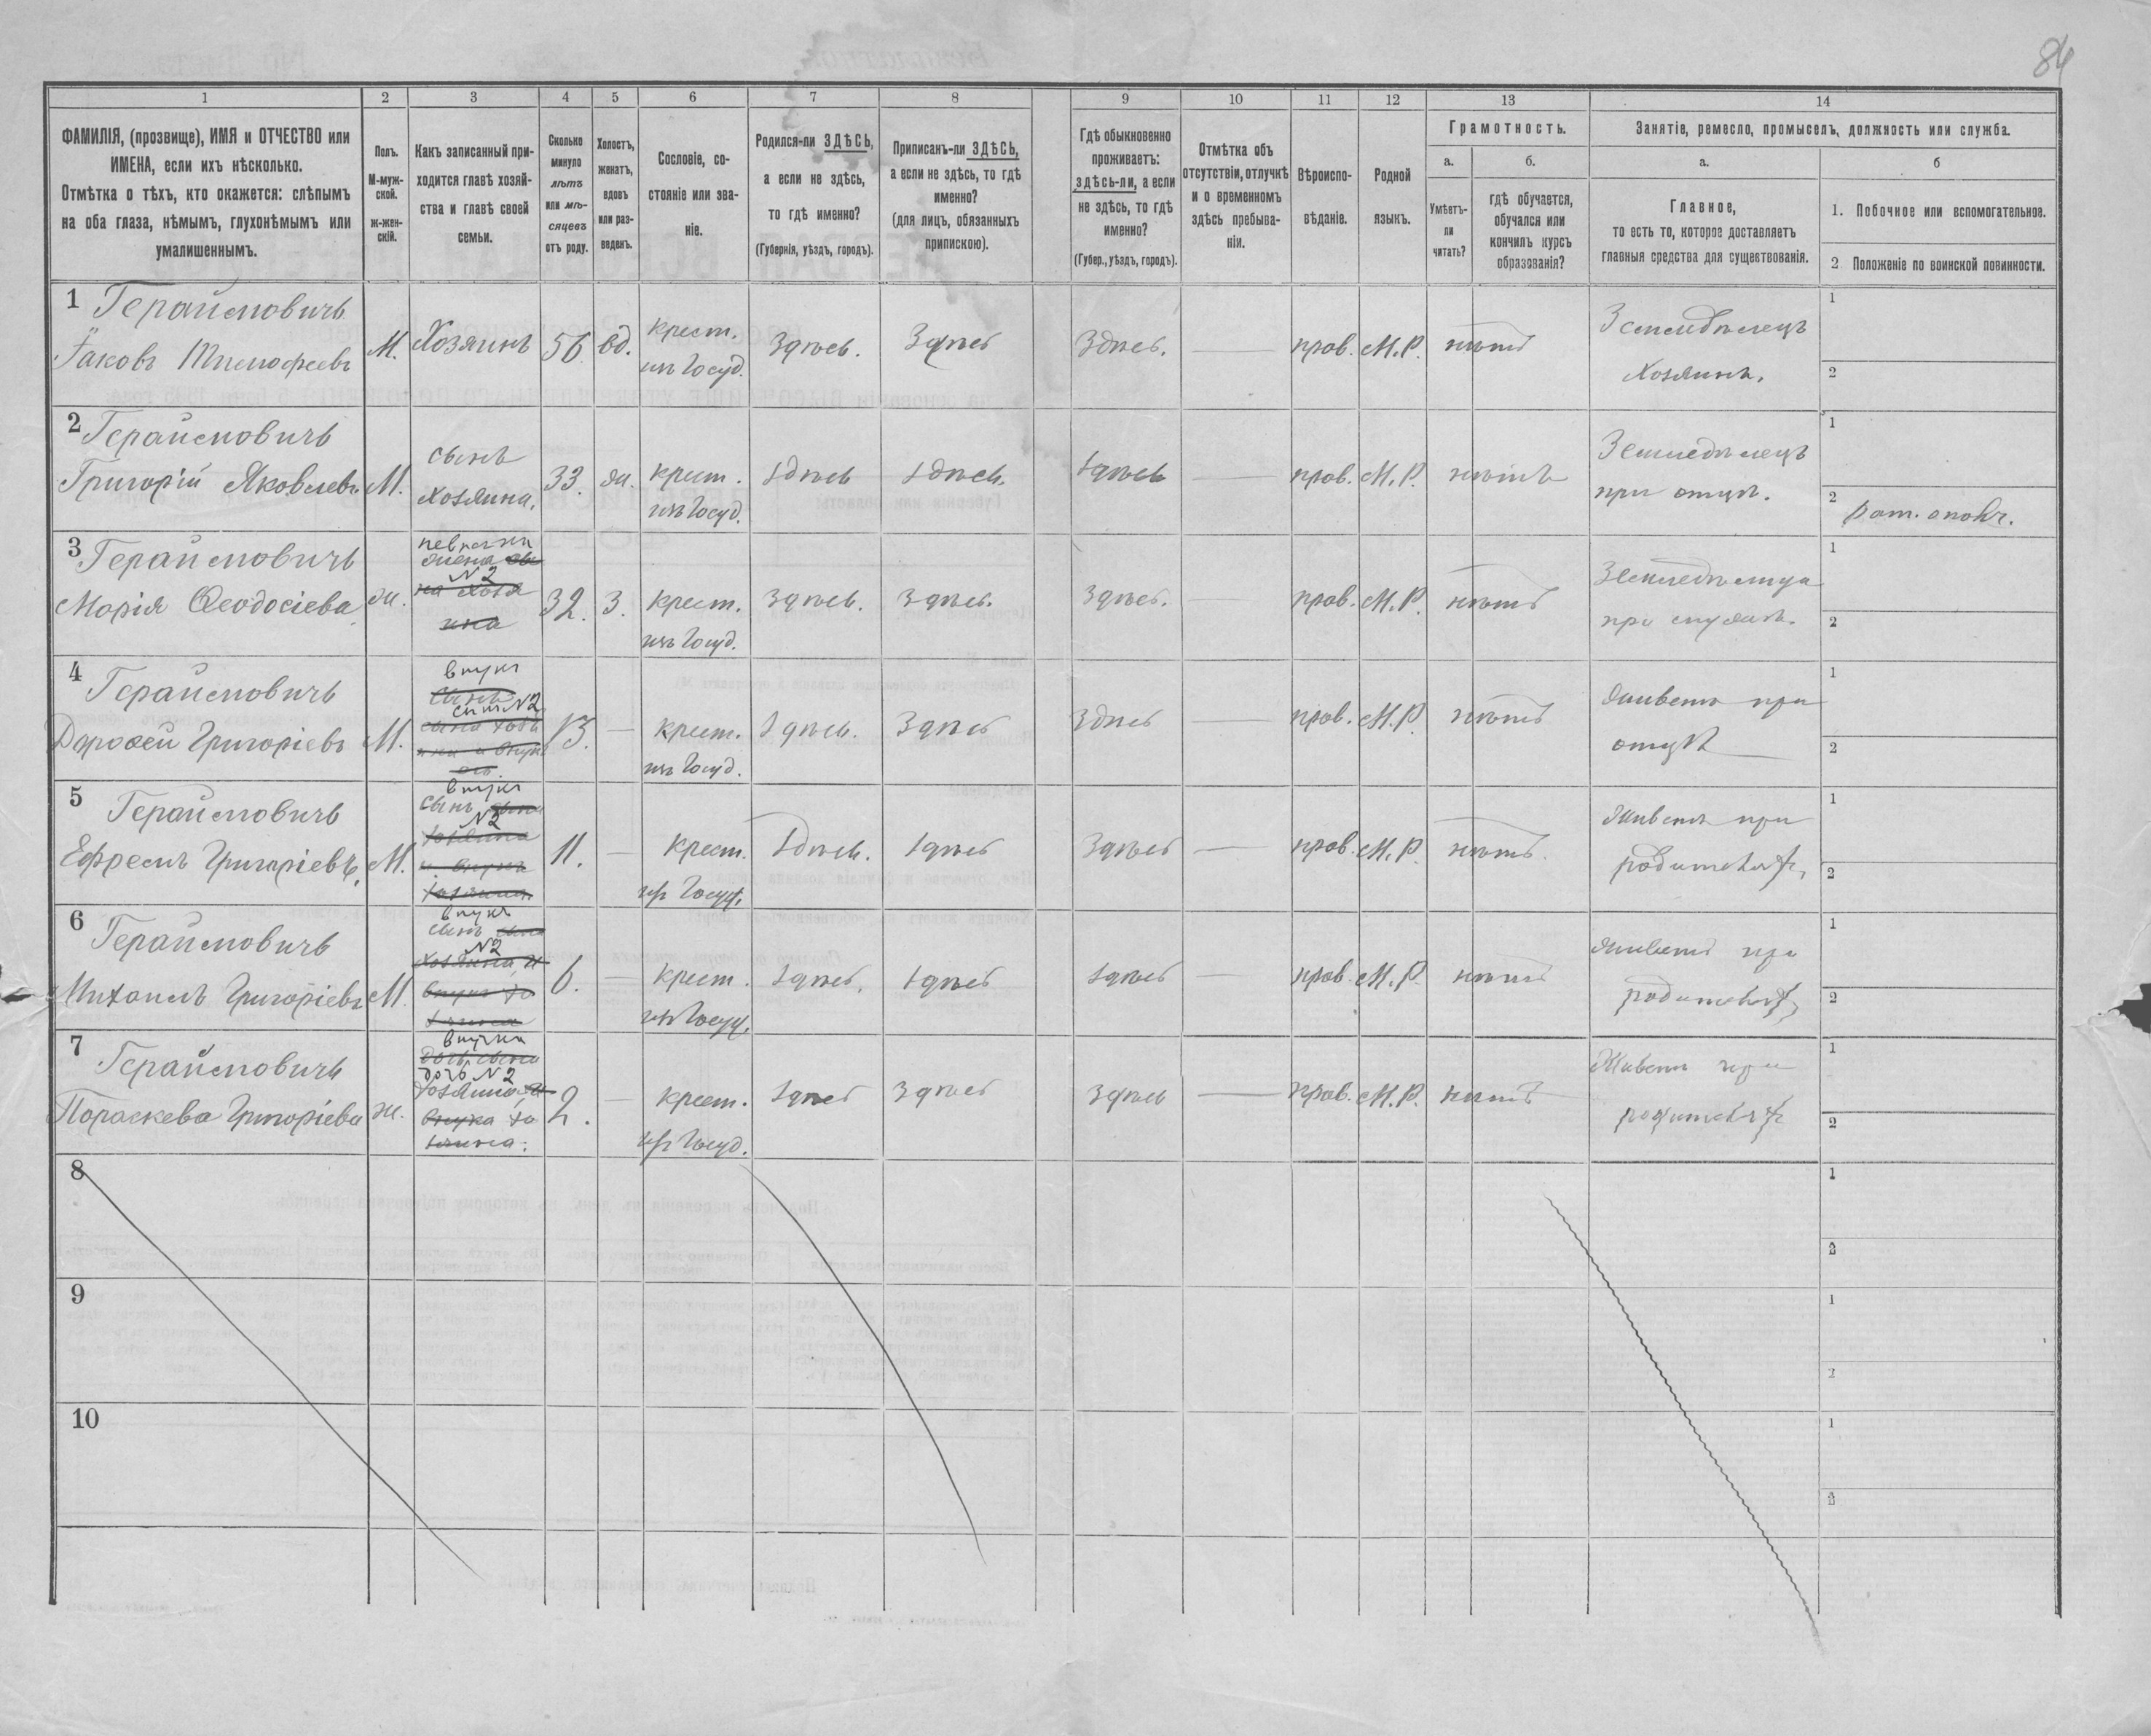 84
1 2 3 4 5 6 7 8 9 10 11 12 13 14
ФАМИЛІЯ, (прозвище), ИМЯ и ОТЧЕСТВО или
ИМЕНА, если ихъ нѣсколько.
Отмѣтка о тѣхъ, кто окажется: слѣпымъ
на оба глаза, нѣмымъ, глухонѣмымъ или
умалишеннымъ.
Полъ.
М-муж-
ской.
ж-жен-
скій.
Какъ записанный при-
ходится главѣ хозяй-
ства и главѣ своей
семьи.
Сколько
минуло
лѣтъ
или мѣ-
сяцевъ
отъ роду.
Холостъ,
женатъ,
вдовъ
или раз-
веденъ.
Сословіе, со-
стояніе или зва-
ніе.
Родился-ли ЗДѢСЬ,
а если не здѣсь,
то гдѣ именно?
(Губернія, уѣздъ, городъ).
Приписанъ-ли ЗДѢСЬ,
а если не здѣсь, то гдѣ
именно?
(для лицъ, обязанныхъ
припискою).
Гдѣ обыкновенно
проживаетъ:
здѣсь-ли, а если
не здѣсь, то гдѣ
именно?
(Губер., уѣздъ, городъ).
Отмѣтка объ
отсутствіи, отлучкѣ
и о временномъ
здѣсь пребыва-
ніи.
Вѣроиспо-
вѣданіе.
Родной
языкъ.
Грамотность.
а. б.
Умѣетъ-
ли
читать?
гдѣ обучается,
обучался или
кончилъ курсъ
образованія?
Занятіе, ремесло, промыселъ, должность или служба.
а. б
Главное,
то есть то, которое доставляетъ
главныя средства для существованія.
1. Побочное или вспомогательное.
2 Положеніе по воинской повинности.
1 Герайимовичъ
Іаковъ Тимофеевъ
М. Хозяинъ 56. вд.
крест.
изъ Госуд.
Здѣсь. Здѣсь Здѣсь. — прав. М.Р. нѣтъ
Земледѣлецъ
Хозяинъ.
1
2
2 Герайимовичъ
Григорій Яковлевъ
М.
сынъ
хозяина.
33. жи.
крест.
изъ Госуд.
здѣсь здѣсь. здѣсь — прав. М.Р. нѣтъ
Земледѣлецъ
при отцѣ.
1
2 рат. ополч.
3 Герайимовичъ
Марія Ѳеодосіева
жи.
невѣстка
жена
№2
32. З.
крест.
изъ Госуд.
Здѣсь. Здѣсь. Здѣсь. — прав. М.Р. нѣтъ
Земледѣлица
при мужѣ.
1
2
4 Герайимовичъ
Дорофей Григоріевъ
М.
внукъ
сынъ №2
13. —
крест.
изъ Госуд.
Здѣсь. Здѣсь Здѣсь — прав. М.Р. нѣтъ
живетъ при
отцѣ
1
2
5 Герайимовичъ
Ефремъ Григоріевъ.
М.
внукъ
сынъ
№2
11. —
крест.
изъ Госуд.
здѣсь. здѣсь Здѣсь — прав. М.Р. нѣтъ.
живетъ при
родителях,
1
2
6 Герайимовичъ
Михаилъ Григоріевъ
М.
внукъ
сынъ
№2
6. —
крест.
изъ Госуд.
здѣсь. здѣсь здѣсь — прав. М.Р. нѣтъ
живетъ при
родителях,
1
2
7 Герайимовичъ
Параскева Григоріева
жи.
внучка
дочь №2
2. —
крест.
изъ Госуд.
здѣсь Здѣсь Здѣсь — прав. М.Р. нѣтъ
Живетъ при
родителях
1
2
8
1
2
9
1
2
10
1
2